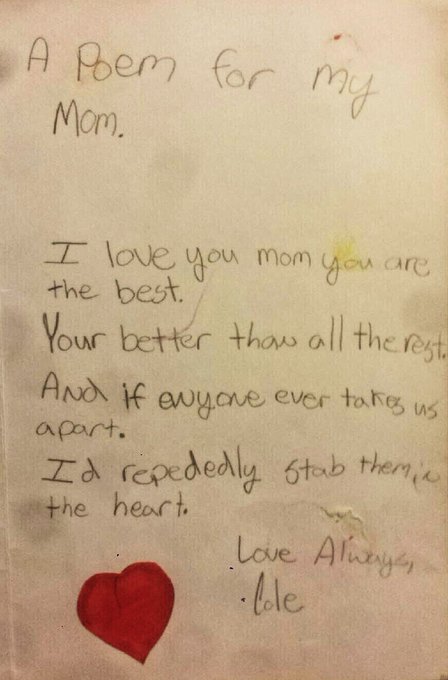 A Poem for my
Mom.
I love you mom you are
the best.
Your better than all the rest.
And if enyone ever takes us
apart.
I'd repededly stab them in
the heart.
Love Always,
Cole